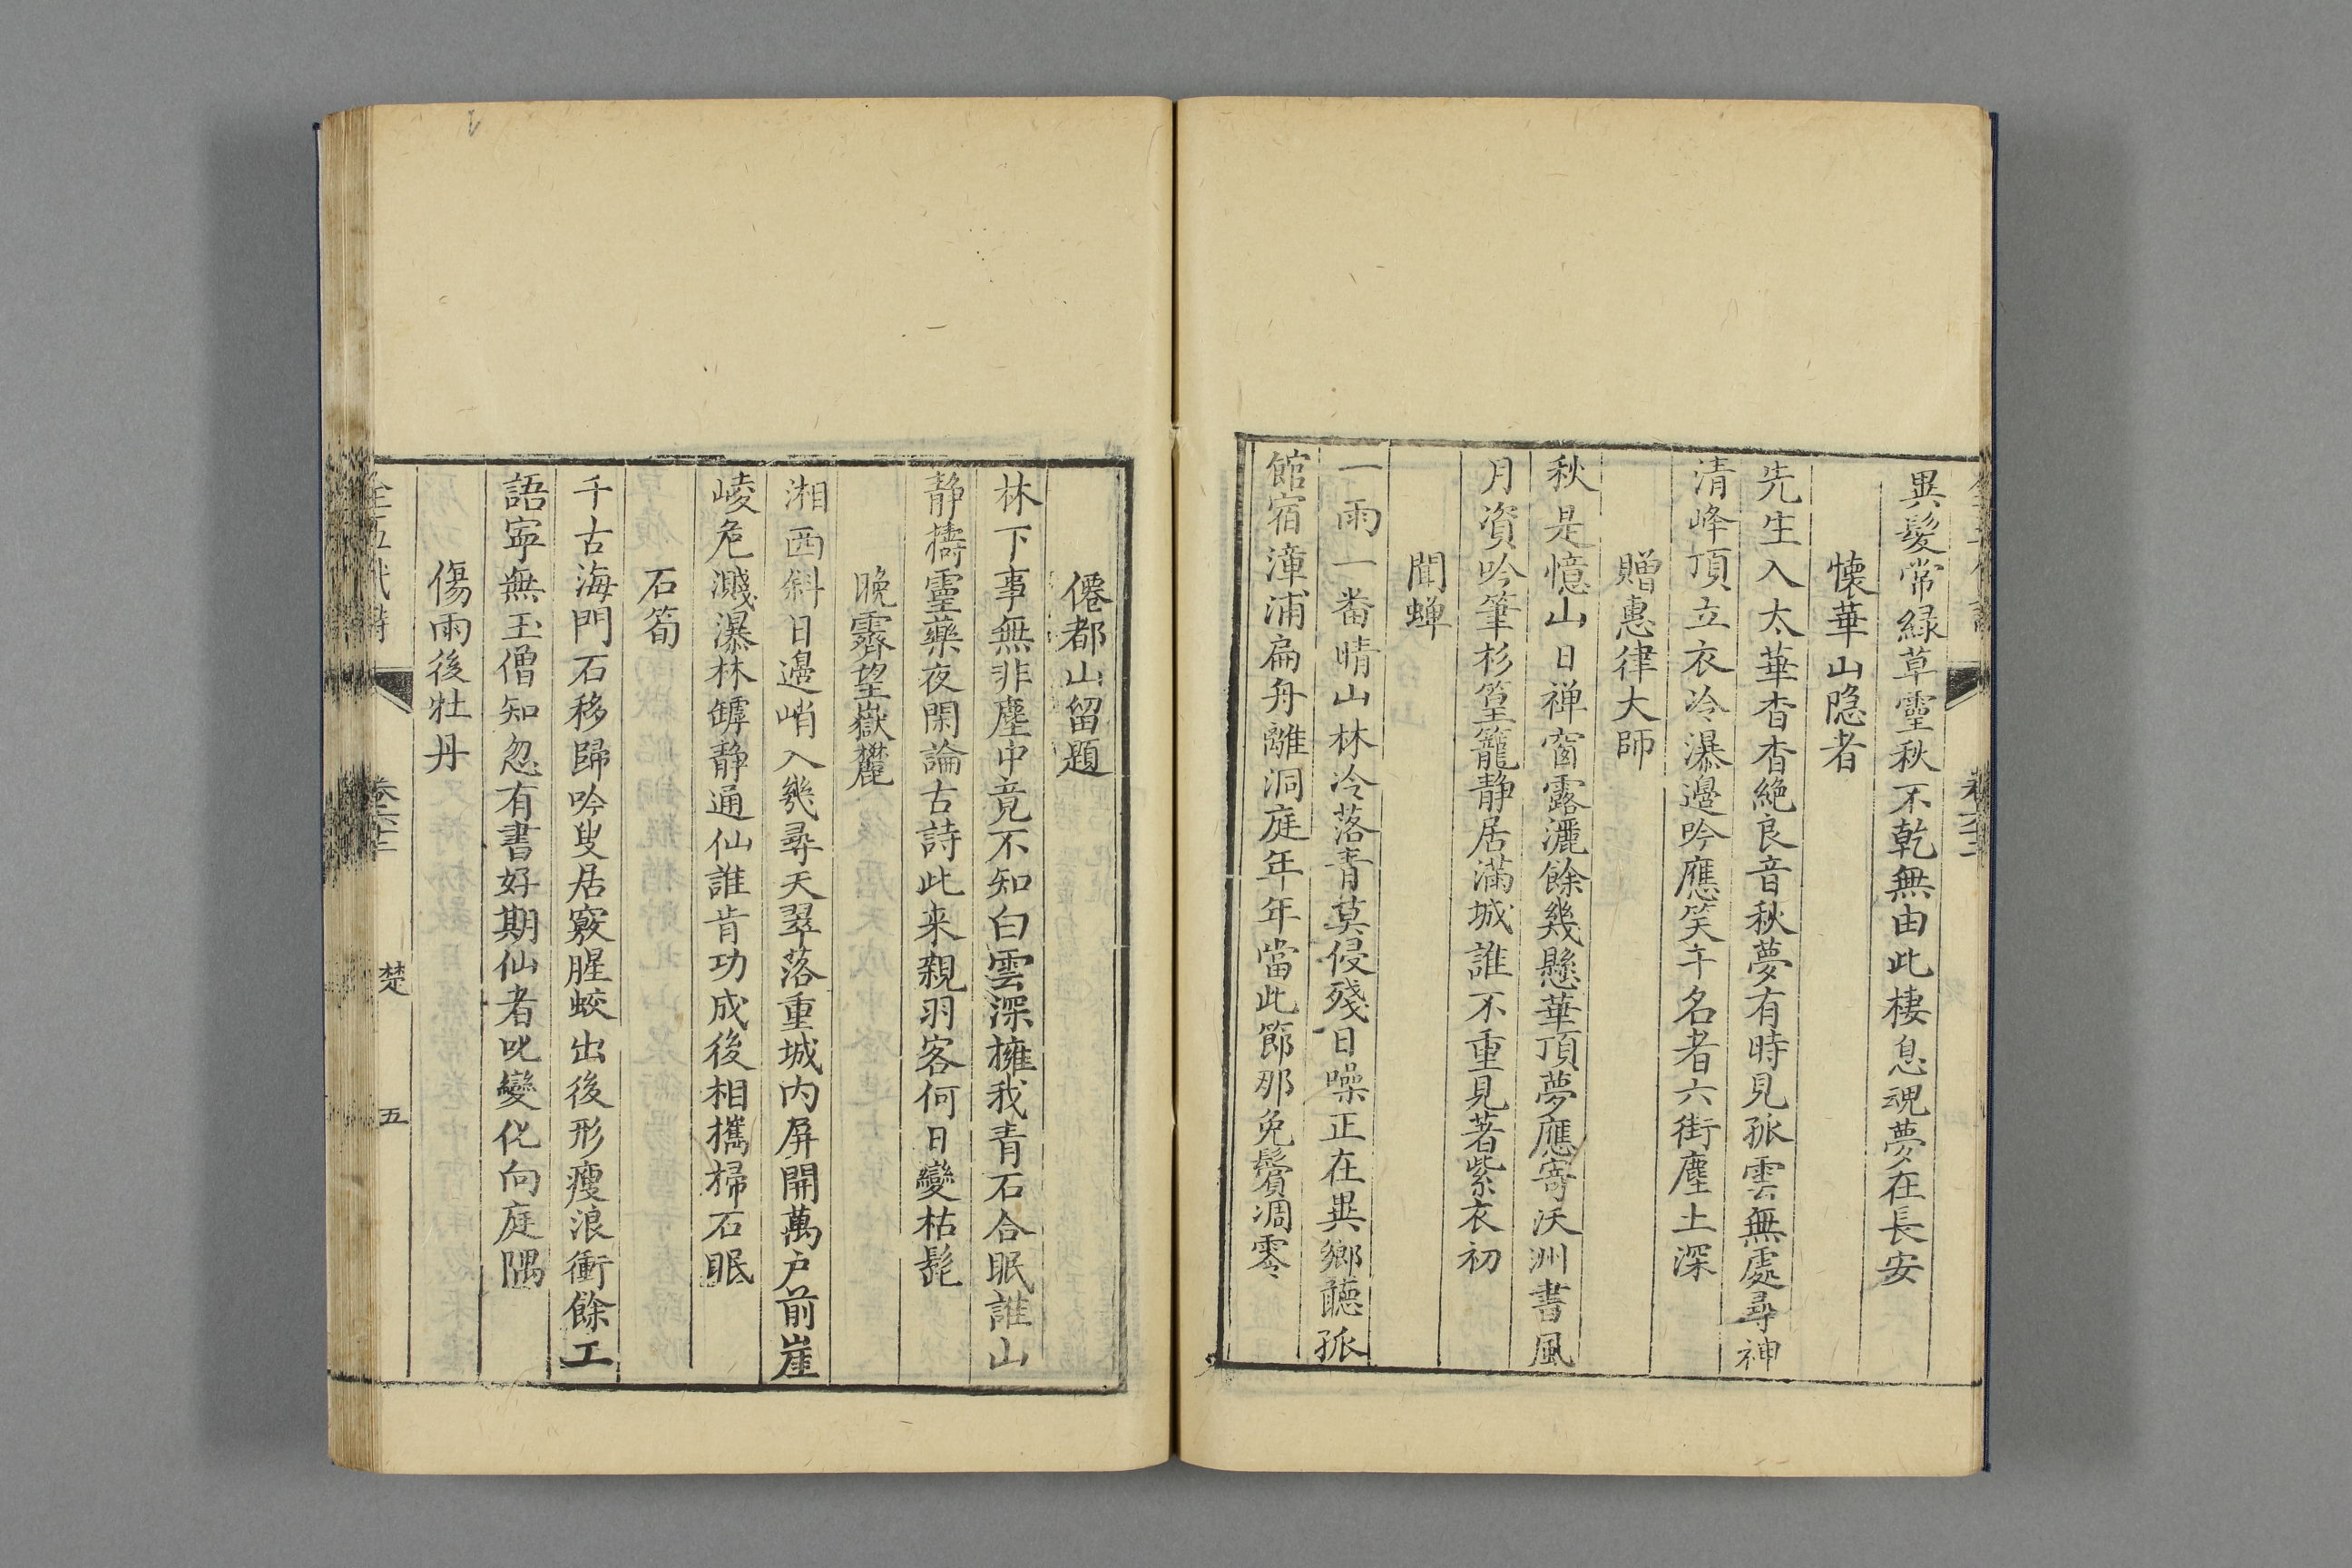 異髮常緑草靈秋不乾無由此棲息魂夢在長安
懷華山隐者
先生入太華杳杳絶良音秋夢有時見孤雲無處尋神
清峰頂立衣冷瀑邊吟應笑干名者六街塵土深
贈惠律大師
秋是憶山日禅窗露灑餘幾懸華頂夢應寄沃洲書風
月資吟筆杉篁籠静居滿城誰不重見著紫衣初
聞蝉
一雨一番晴山林冷落青莫侵殘日噪正在異鄉聽孤
館宿漳浦扁舟離洞庭年年當此節那免鬢凋零
僊都山留題
林下事無非塵中竟不知白雲深擁我青石合眠誰山
静擣靈藥夜閑論古詩此来親羽客何日變枯髭
晚霽望嶽麓
湘西斜日邊峭入幾尋天翠落重城内屏開萬户前崖
崚危濺瀑林罅静通仙誰肯功成後相攜掃石眠
石筍
千古海門石移歸吟叟居竅腥蛟出後形瘦浪衝餘工
語寕無玉僧知忽有書好期仙者叱變化向庭隅
傷雨後牡丹
全五代詩
楚
五